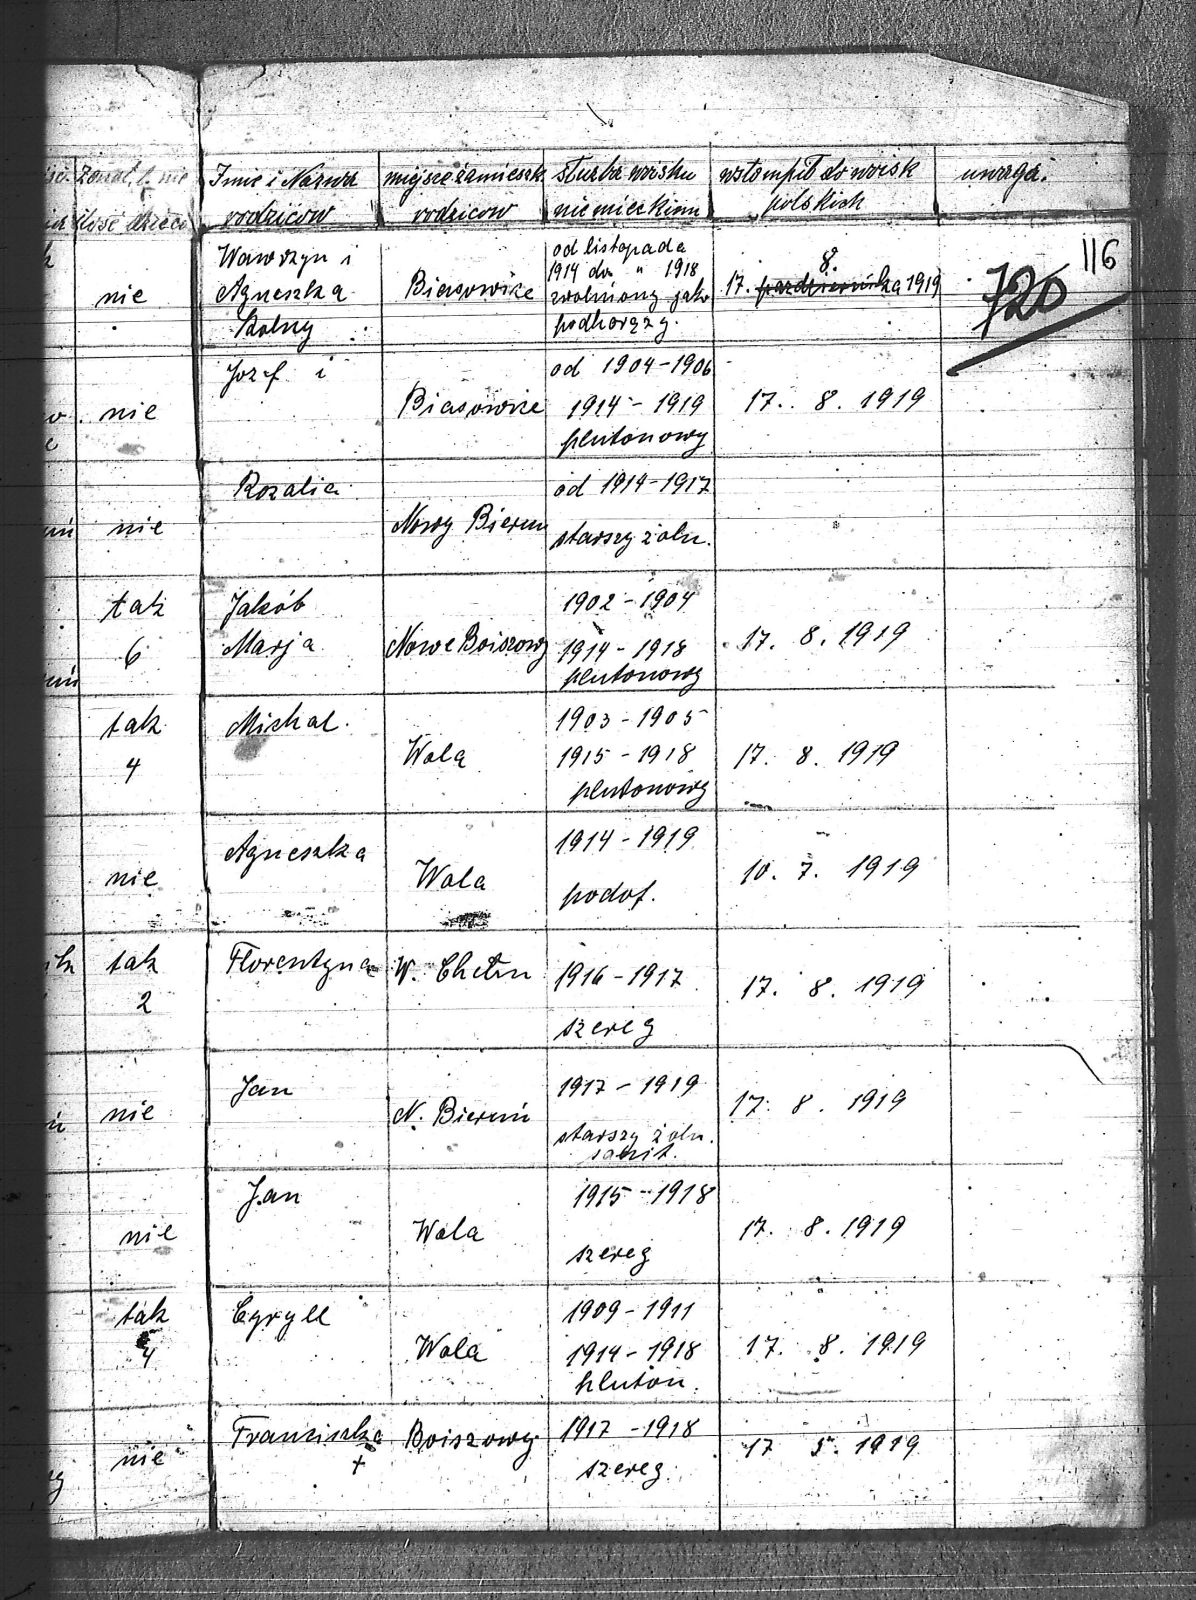 żonat. l. nie Imie i Nazwa miejsce zamieszk służba wojsku wstompił do wojsk uwaga.
ilość dzieci rodziców rodziców niemieckim polskich
116
720
Wawrzyn i od listopada
nie Agneszka Biasowice 1914 do " 1918 8.
Kolny zwolniony jako 17. października 1919
podhorąży.
Jozef i od 1904-1906
nie Biasowice 1914 - 1919 17. 8. 1919
plutonowy
Rozalia od 1914-1917
nie Nowy Bierun starszy żoln.
tak Jakób 1902-1904
6 Marja Nowe Boiszowy 1914-1918 17. 8. 1919
plutonowy
tak Michal. 1903-1905
4 Wola 1915-1918 17. 8. 1919
plutonowy
Agneszka 1914-1919
nie Wola podof. 10. 7. 1919
tak Florentyna W. Chełm 1916-1917 17. 8. 1919
2 szereg
Jan 1917-1919
nie N. Bieruń starszy żoln. 17. 8. 1919
sanit.
Jan 1915-1918
nie Wola szereg 17. 8. 1919
tak Cyryll 1909-1911
4 Wola 1914-1918 17. 8. 1919
pluton.
Franciszka Boiszowy 1917-1918 17 5. 1919
nie + szereg.